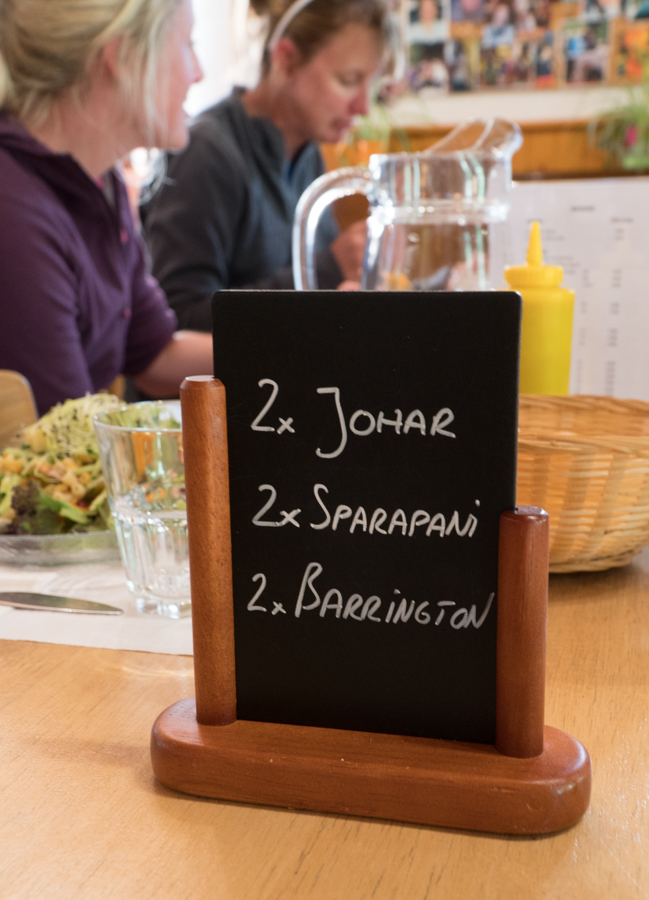 2x JOHAR
2x SPARAPANi
2x BARRiNGTON